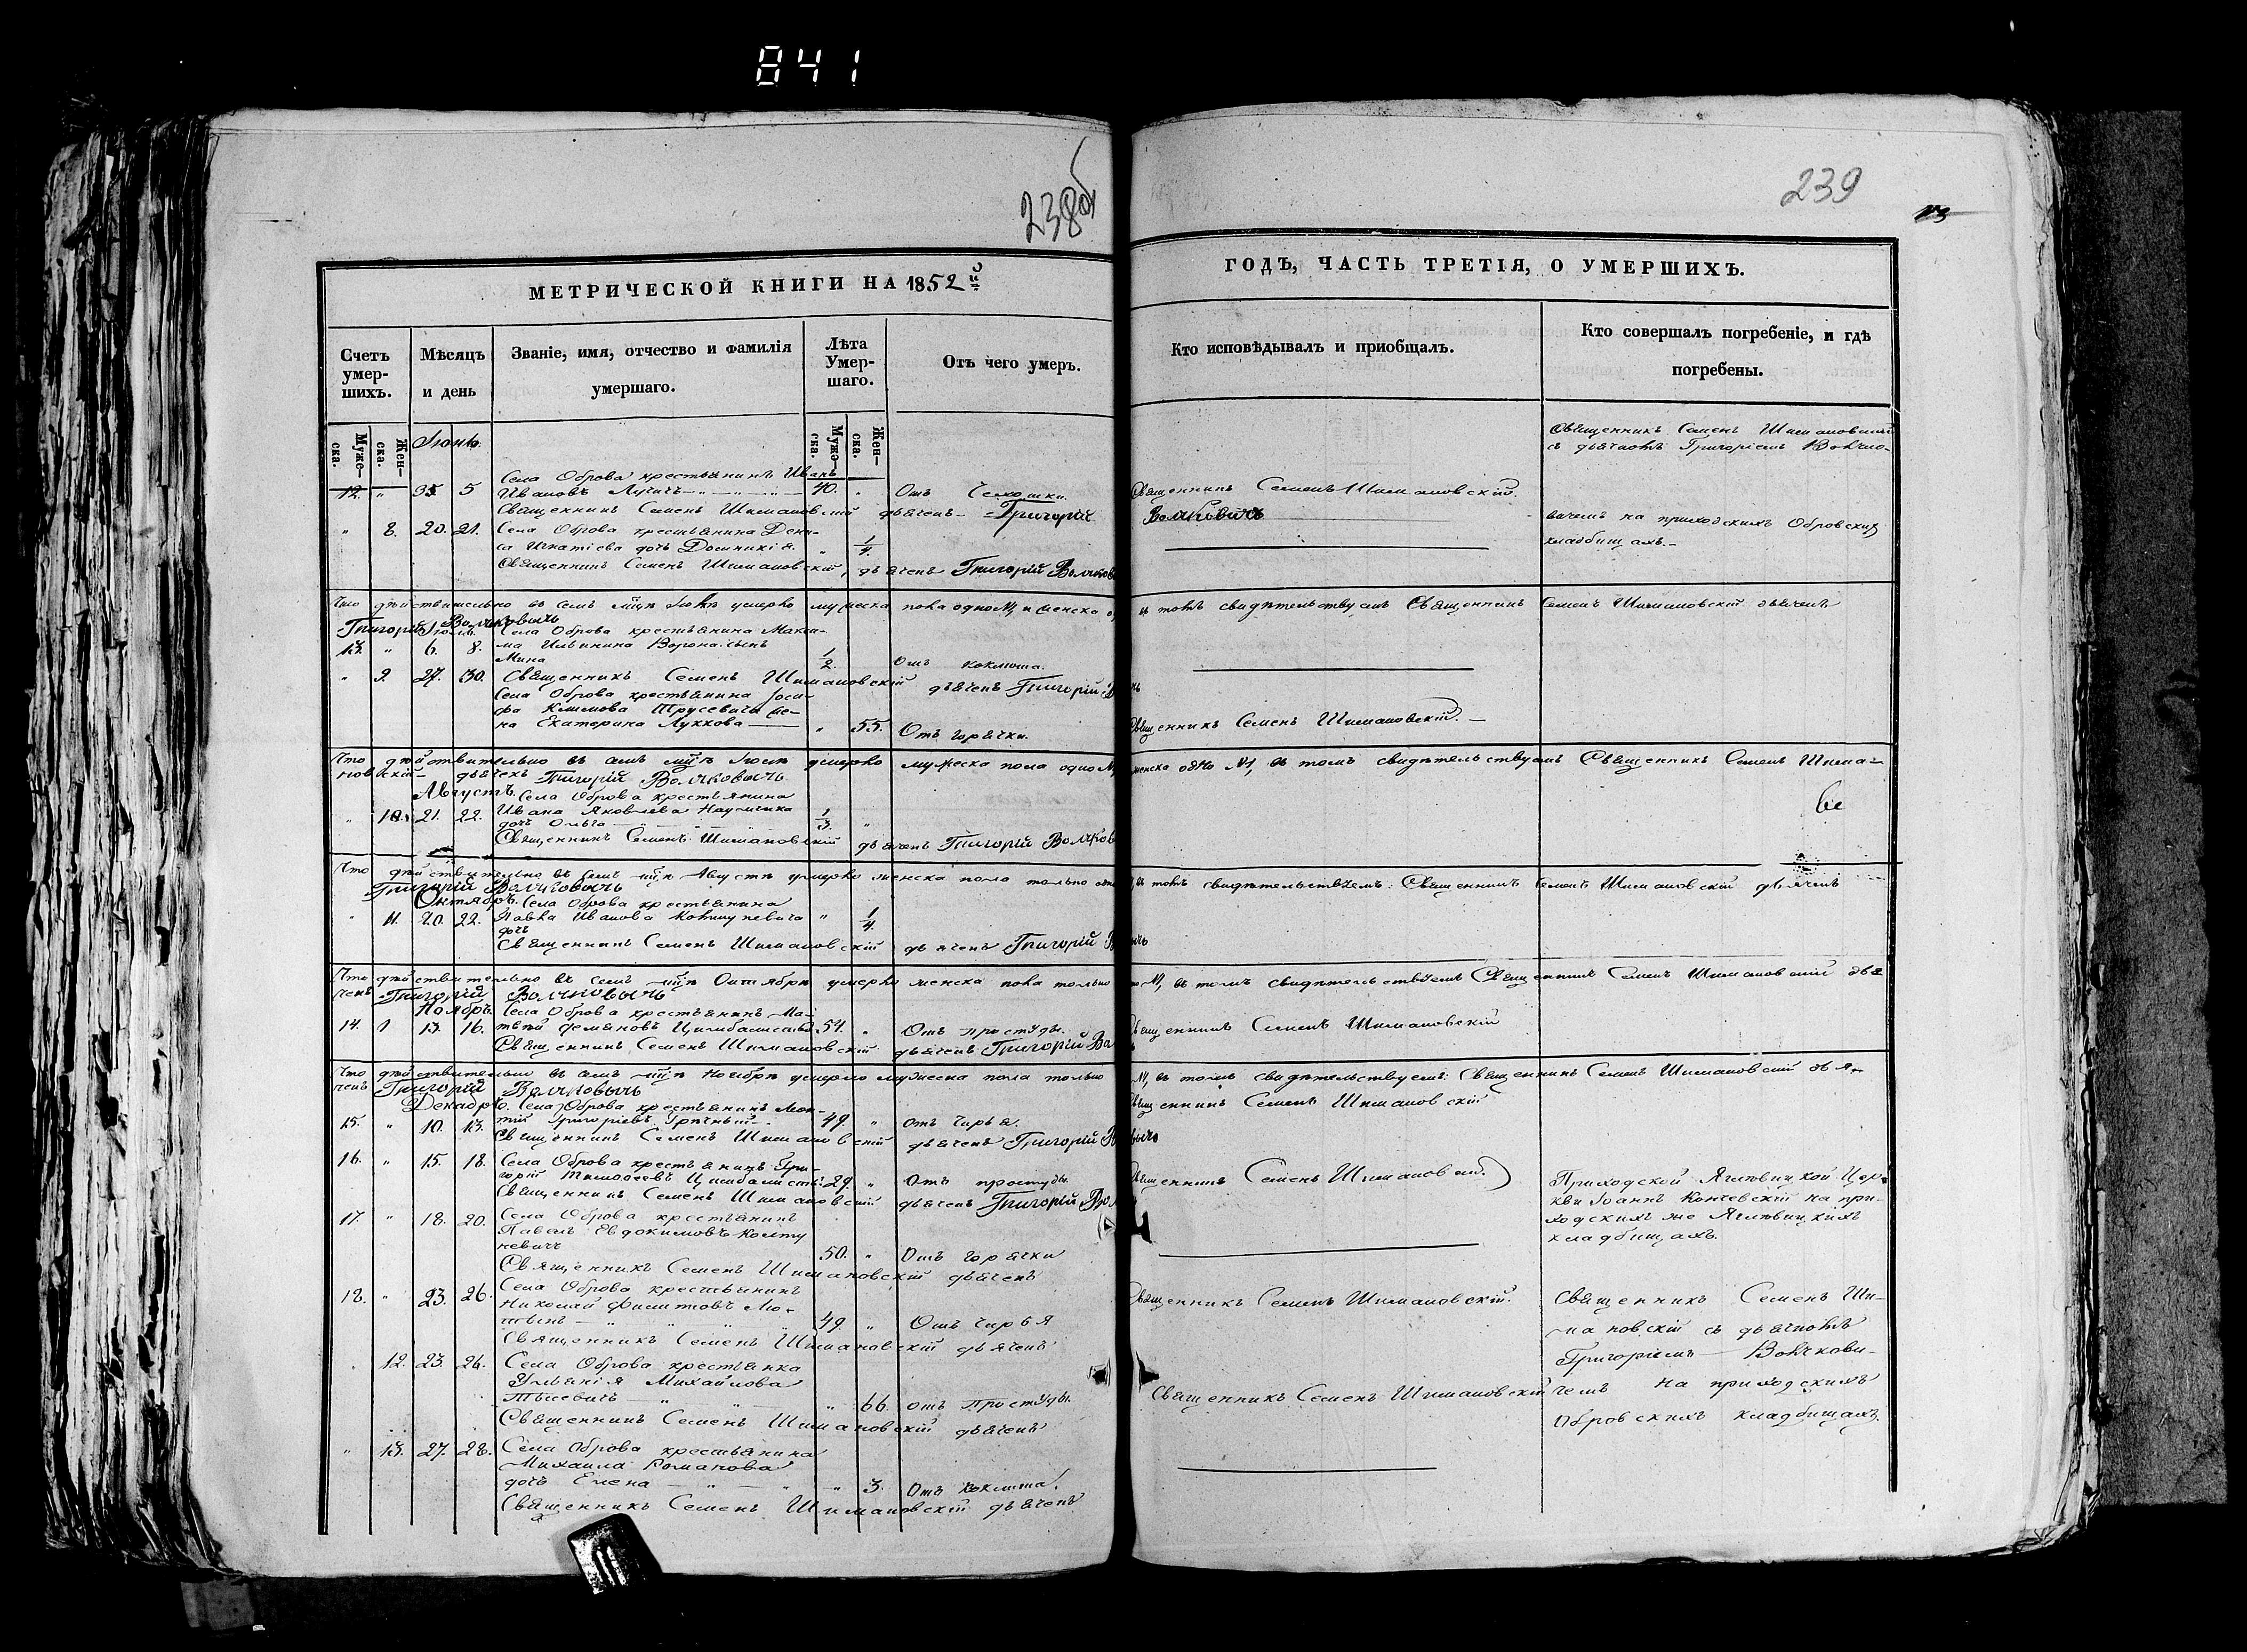 841
238об
239
МЕТРИЧЕСКОЙ КНИГИ НА 1852й
ГОДЪ, ЧАСТЬ ТРЕТІЯ, О УМЕРШИХЪ.
Счетъ умер-шихъ.
Мѣсяцъ и день
Званіе, имя, отчество и фамилія умершаго.
Лѣта Умер-шаго.
Отъ чего умеръ.
Кто исповѣдывалъ и приобщалъ.
Кто совершалъ погребеніе, и гдѣ погребены.
Муже-ска.
Жен-ска.
Муже-ска.
Жен-ска.
Іюнь.
Священникъ Семенъ Шимановскій
съ дьячкомъ Григоріемъ Волчко-
Села Оброва крестьянинъ Иванъ
12. " 5 Ивановъ 40. " Отъ
Священникъ Семенъ Шимановскій.
Священникъ Семенъ Шимановскій дьячекъ Григорій Волчковичъ
" 8. 20. 21. Села Оброва крестьянина Дени-
са Игнатіева дочь Домникія " 1/4.
вичемъ на приходскихъ Обровскихъ
кладбищахъ.
Священникъ Семенъ Шимановскій, дьячекъ Григорій Волчков
Что дѣйствительно въ семъ мцѣ Іюнѣ умерло мужеска пола одно №1 и женска
въ томъ свидѣтельствуемъ Священникъ Семенъ Шимановскій дьячекъ
Григорій Волчковичъ
Іюль. Села Оброва крестьянина Макси-
13. " 6. 8. ма Ильинина Ворона сынъ
Мина 1/2. Отъ коклюша.
" 9. 27. 30. Священникъ Семенъ Шимановскій дьячекъ Григорій
Села Оброва крестьянина Іоси-
фа Климова Трусевича же-
на Екатерина Лукхова " 55. Отъ горячки.
Священникъ Семенъ Шимановскій.
Что дѣйствительно въ семъ мцѣ Іюлѣ умерло мужеска пола одно №
женска одно №1, въ томъ свидѣтельствуемъ Священникъ Семенъ Шима-
новскій дьячекъ Григорій Волчковичъ
Августъ. Села Оброва крестьянина
" 10. 21. 22. Ивана Яковлева Наумчика
дочь Ольга 1/3. "
Священникъ Семенъ Шимановскій дьячекъ Григорій Волчков
Что дѣйствительно въ семъ мцѣ Августѣ умерло женска пола только одно
въ томъ свидѣтельствуемъ: Священникъ Семенъ Шимановскій дьячекъ
Григорій Волчковичъ
Октябрь. Села Оброва крестьянина
" 11. 20. 22. Павла Иванова Колтуневича " 1/4.
дочь
Священникъ Семенъ Шимановскій дьячекъ Григорій
Что дѣйствительно въ семъ мцѣ Октябрѣ умерло женска пола только
№1, въ томъ свидѣтельствуемъ Священникъ Семенъ Шимановскій дья-
чекъ Григорій Волчковичъ
Ноябрь. Села Оброва крестьянинъ Ма-
14. 13. 16. твѣй Демяновъ 54. " Отъ простуды.
Священникъ Семенъ Шимановскій
Священникъ Семенъ Шимановскій дьячекъ Григорій Во
Что дѣйствительно въ семъ мцѣ Ноябрѣ умерло мужеска пола только
№1, въ томъ свидѣтельствуемъ: Священникъ Семенъ Шимановскій дья-
чекъ Григорій Волчковичъ
Декабрь. Села Оброва крестьянинъ Леон-
15. " 10. 13. тій Григоріевъ 49. " отъ чирья.
Священникъ Семенъ Шимановскій
Священникъ Семенъ Шимановскій дьячекъ Григорій
16. " 15. 18. Села Оброва крестьянинъ Гри-
горій Тимофеевъ 29. " Отъ простуды.
Священникъ Семенъ Шимановскій
Священникъ Семенъ Шимановскій дьячекъ Григорій Вол
Приходской Яглевицкой Цер-
кви Іоаннъ Кончевскій на при-
ходскихъ же Яглевицкихъ
кладбищахъ.
17. " 18. 20. Села Оброва крестьянинъ
Павелъ Евдокимовъ Колту
невичъ 50. " Отъ горячки
Священникъ Семенъ Шимановскій дьячекъ
18. " 23. 26. Села Оброва крестьянинъ
Николай Филитовъ Лю-
49. " Отъ чирья
Священникъ Семенъ Шимановскій.
Священникъ Семенъ Шимановскій дьячекъ
Священникъ Семенъ Ши-
мановскій съ дьячкомъ
Григоріемъ Волчкови-
чемъ на приходскихъ
Обровскихъ кладбищахъ.
12. 23. 26. Села Оброва крестьянка
Ульянія Михайлова
" 66. отъ простуды.
Священникъ Семенъ Шимановскій
Священникъ Семенъ Шимановскій дьячекъ
" 13. 27. 28. Села Оброва крестьянина
Михаила Романова
дочь Елена " 3. Отъ коклюша.
Священникъ Семенъ Шимановскій дьячекъ